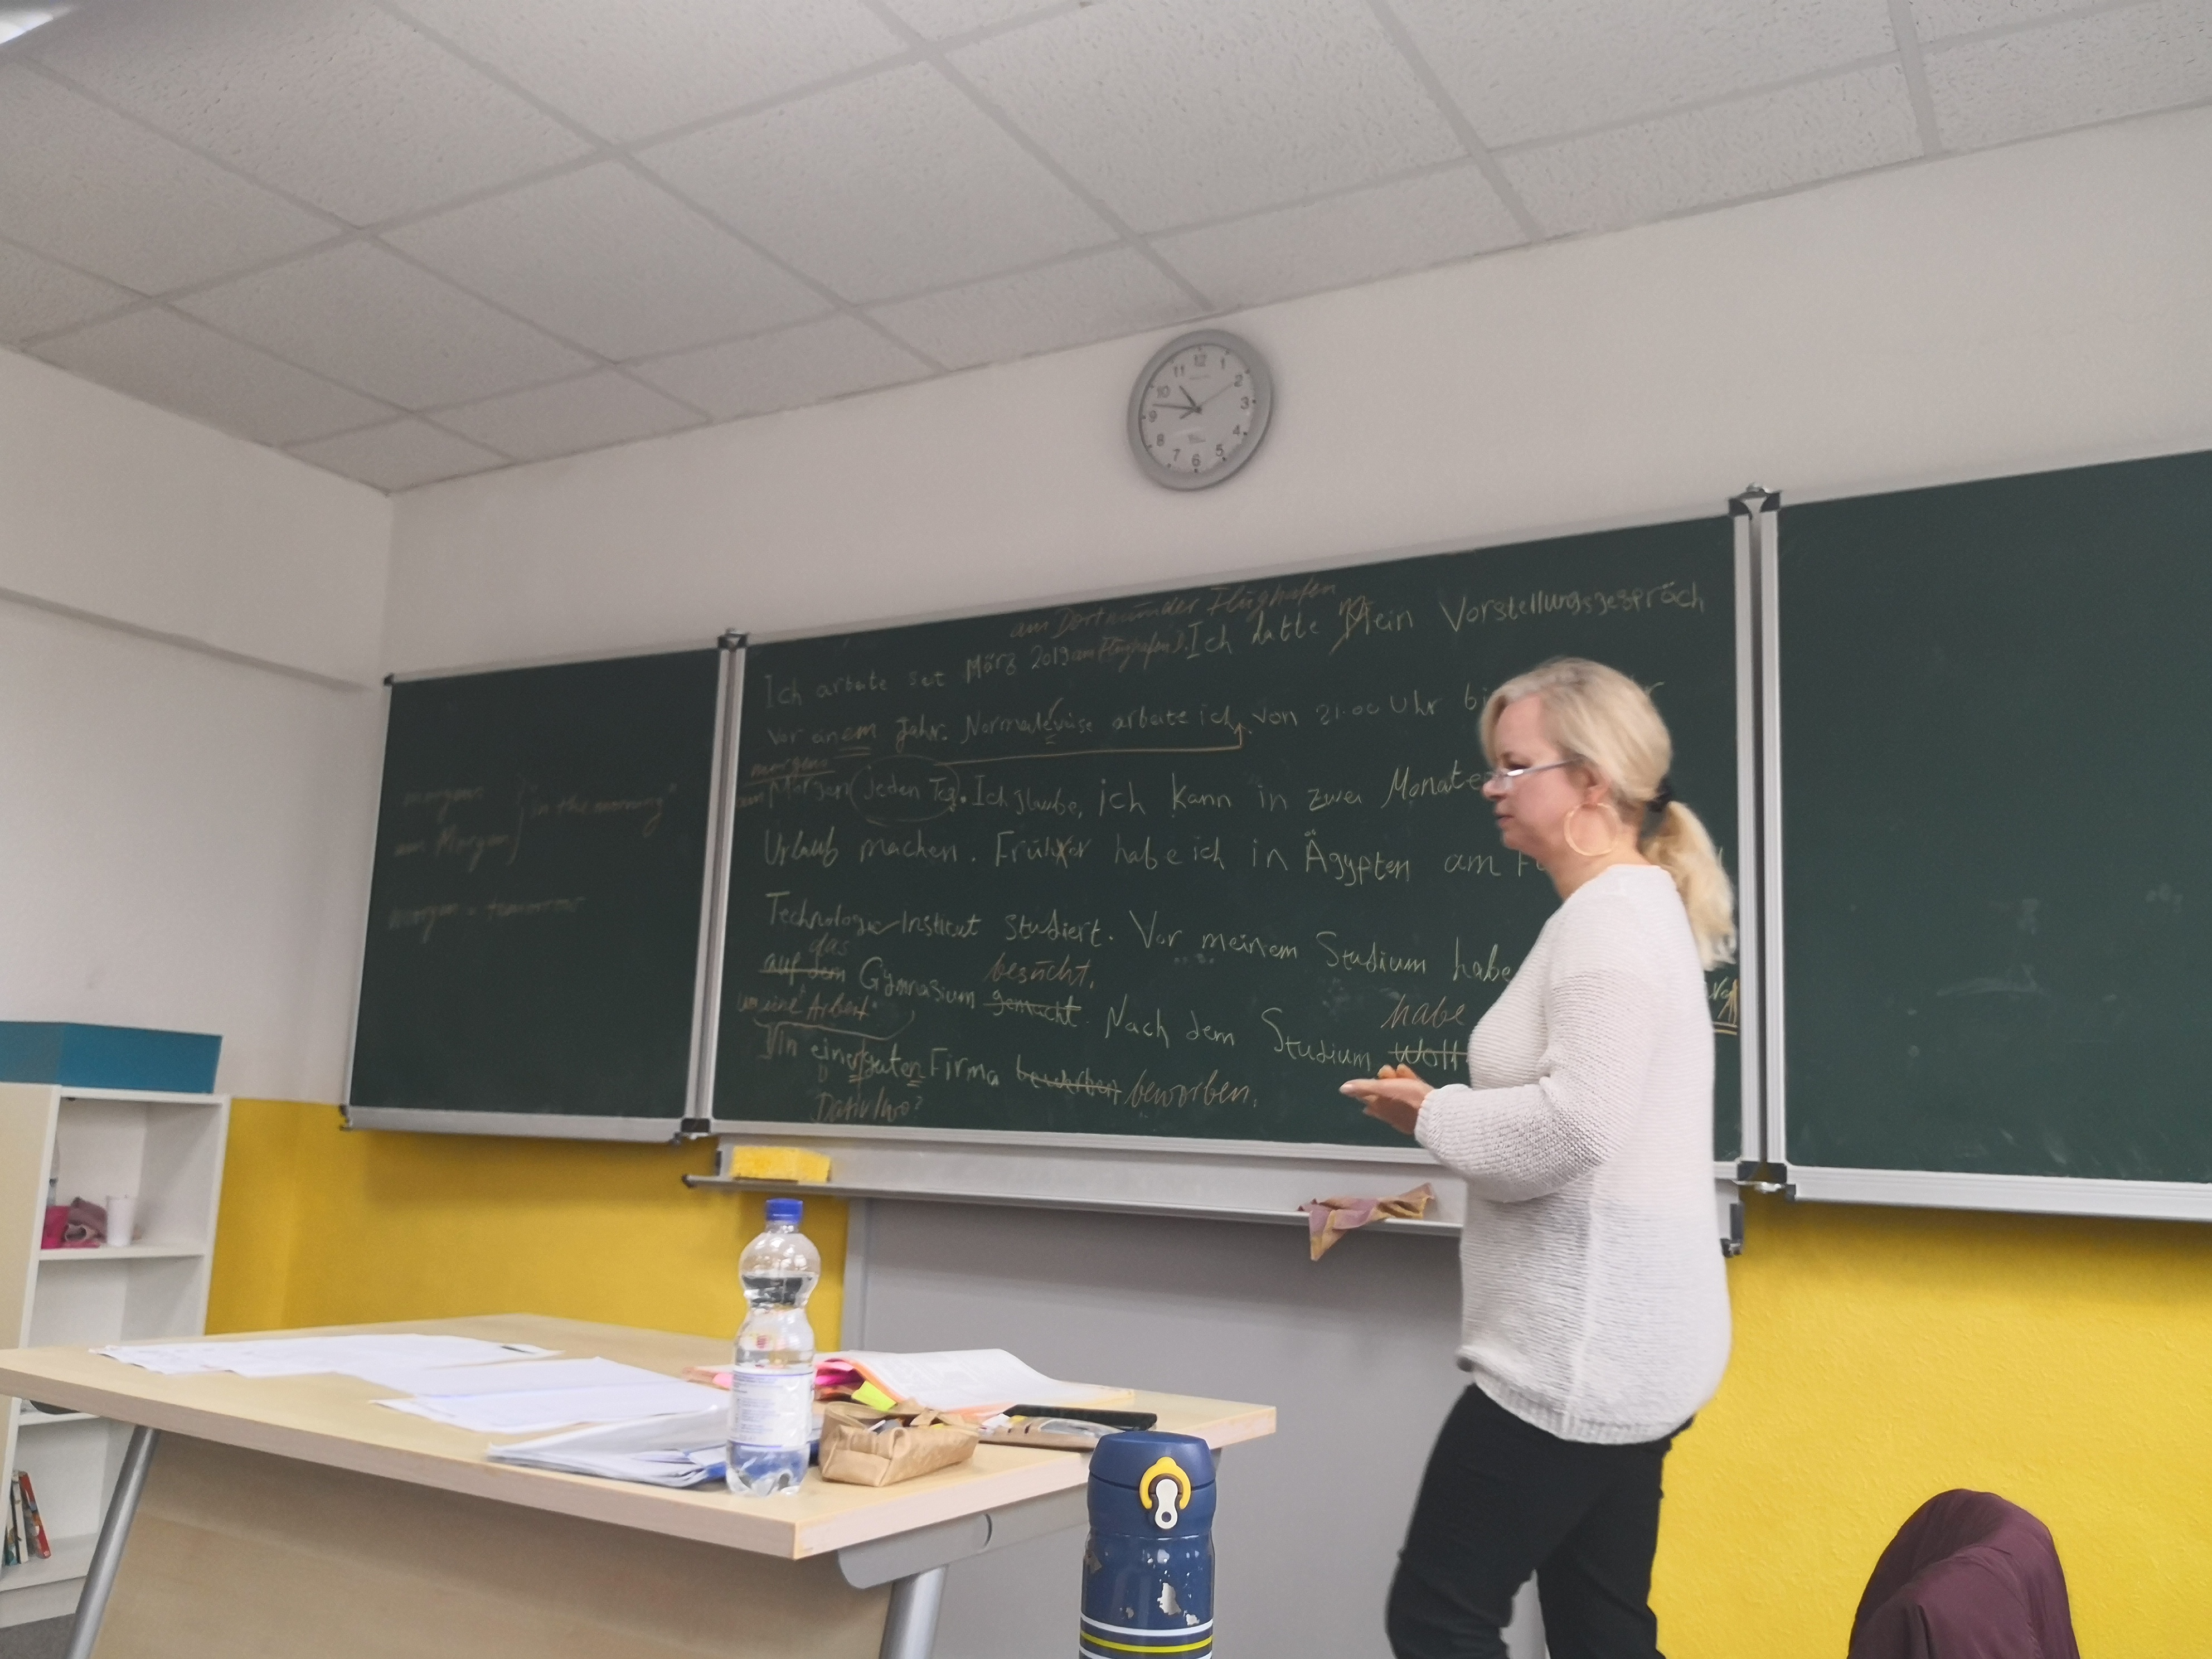 morgens
am Morgen } "in the morning"
morgen = tomorrow
am Dortmunder Flughafen
Ich arbeite seit März 2019 am Flughafen). Ich hatte Mein Vorstellungsgespräch
vor einem Jahr. Normalerweise arbeite ich von 21.00 Uhr
morgens
am Morgen jeden Tag. Ich glaube, ich kann in zwei Monate
Urlaub machen. Früher habe ich in Ägypten am
Technologie-Institut studiert. Vor meinem Studium habe
das
auf dem Gymnasium gemacht. besucht. Nach dem Studium habe
um eine Arbeit
in einer guten Firma bewerben beworben.
Dativ/wo?
12
1
2
3
4
5
6
7
8
9
10
11